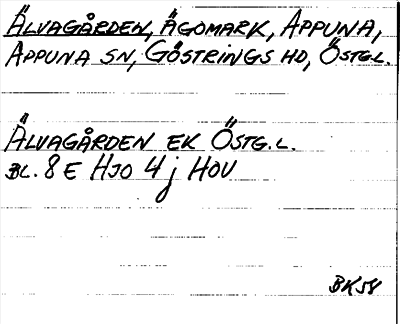 ÄLVAGÅRDEN, ÄGOMARK, APPUNA,
APPUNA SN, GÖSTRINGS HD, ÖSTG.L.
ÄLVAGÅRDEN EK ÖSTG.L.
BL. 8 E HJO 4 j HOV
BK58